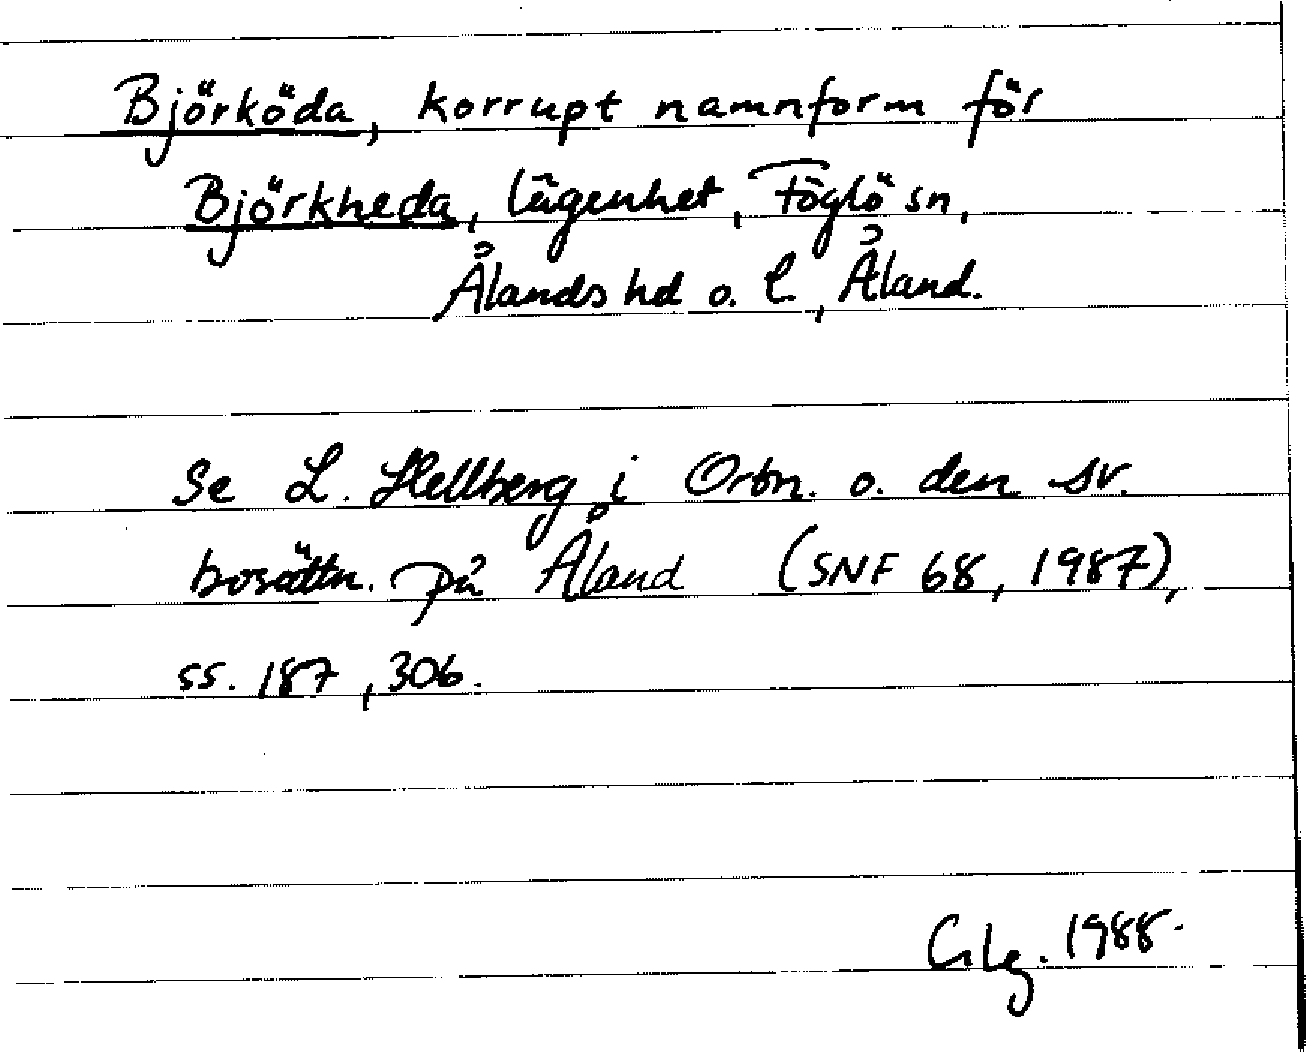 Björköda, korrupt namnform för
Björkheda, lägenhet, Föglö sn,
Ålands hd o. l., Åland.
Se L. Hellberg i Ortn. o. den sv.
bosättn. på Åland (SNF 68, 1987),
ss. 187, 306.
1988.